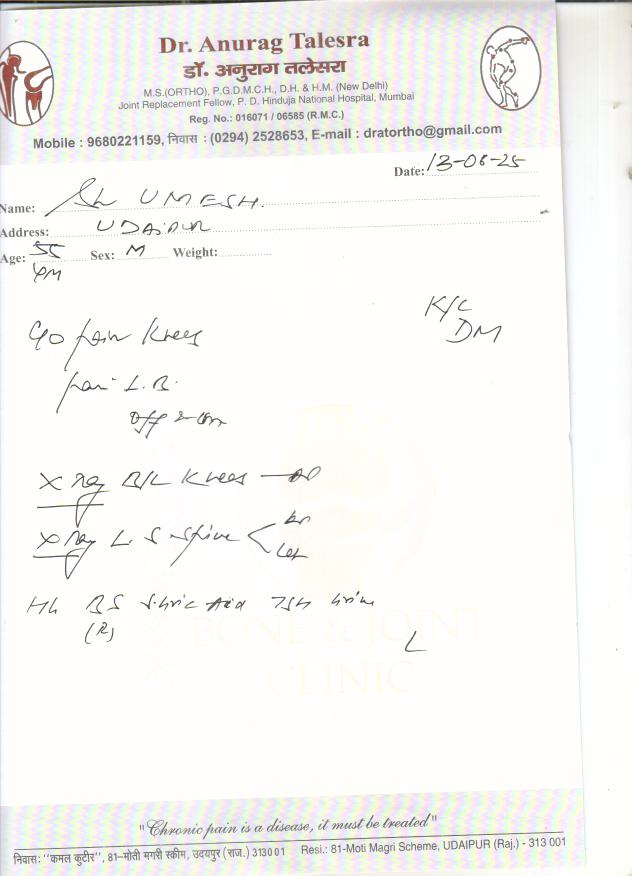 Dr. Anurag Talesra
डॉ. अनुराग तलेसरा
M.S.(ORTHO), P.G.D.M.C.H., D.H. & H.M. (New Delhi)
Joint Replacement Fellow, P. D. Hinduja National Hospital, Mumbai
Reg. No.: 016071 / 06585 (R.M.C.)
Mobile : 9680221159, निवास : (0294) 2528653, E-mail : dratortho@gmail.com
Date: 13-08-25
Name: Sh UMESH.
Address: UDAIPUR
Age: 55 Sex: M Weight:
K/C
DM
C/o pain Knees
pain L.B.
off & on
X ray B/L Knees
X ray L.S spine
Hb BS S.Uric Acid TSH Urine
(R)
BONE & JOINT
CLINIC
"Chronic pain is a disease, it must be treated"
निवास: "कमल कुटीर", 81–मोती मगरी स्कीम, उदयपुर (राज.) 313001 Resi.: 81-Moti Magri Scheme, UDAIPUR (Raj.) - 313 001